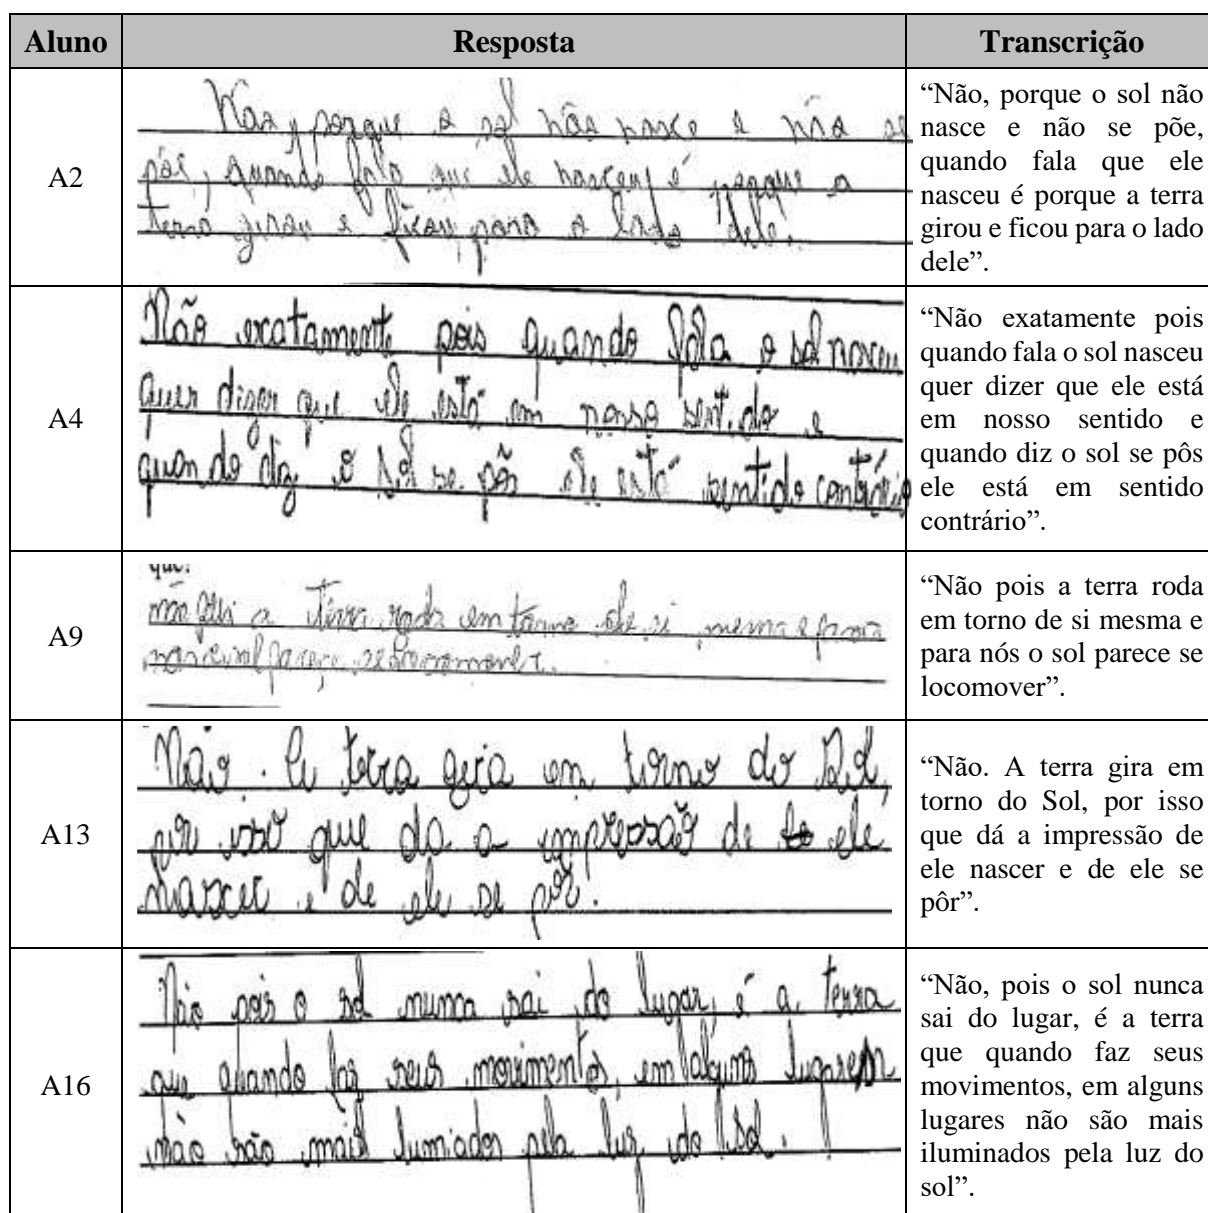 Aluno Resposta Transcrição
A2
Não, porque o sol não nasce e não se
pôs, quando fala que ele nasceu é porque a
terra girou e ficou para o lado dele.
“Não, porque o sol não
nasce e não se põe,
quando fala que ele
nasceu é porque a terra
girou e ficou para o lado
dele”.
A4
Não exatamente pois quando fala o sol nasceu
quer dizer que ele está em nosso sentido e
quando diz o sol se pôs ele está sentido contrário
“Não exatamente pois
quando fala o sol nasceu
quer dizer que ele está
em nosso sentido e
quando diz o sol se pôs
ele está em sentido
contrário”.
A9
que.
não pois a terra roda em torno de si mesma e para
nos o sol parece se locomover.
“Não pois a terra roda
em torno de si mesma e
para nós o sol parece se
locomover”.
A13
Não. A terra gira em torno do Sol,
por isso que da a impressão de ele
nascer e de ele se pôr.
“Não. A terra gira em
torno do Sol, por isso
que dá a impressão de
ele nascer e de ele se
pôr”.
A16
Não pois o sol nunca sai do lugar, é a terra
que quando faz seus movimentos, em alguns lugares
não são mais lumiados pela luz do sol.
“Não, pois o sol nunca
sai do lugar, é a terra
que quando faz seus
movimentos, em alguns
lugares não são mais
iluminados pela luz do
sol”.